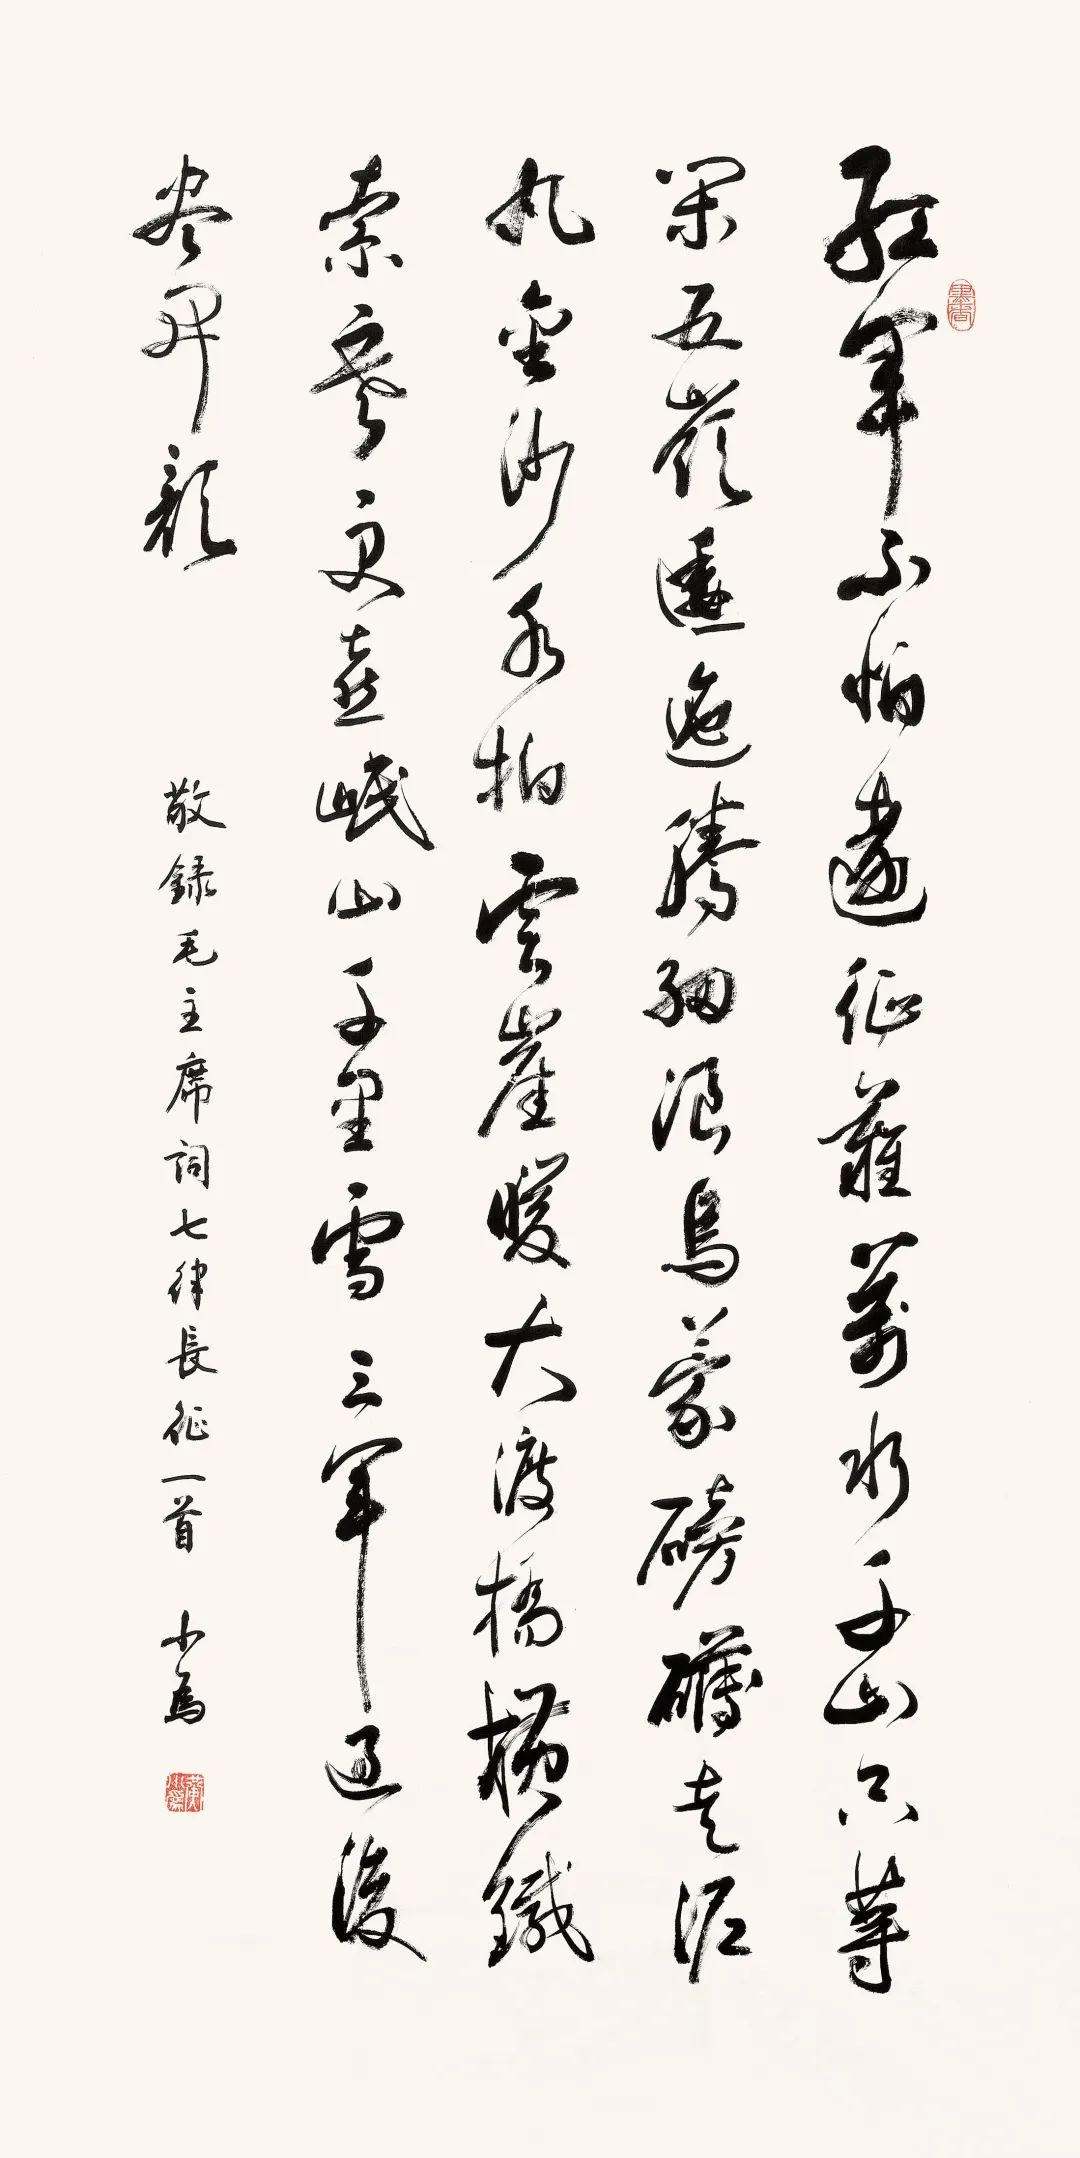 紅軍不怕遠征難萬水千山只等
閑五嶺逶迤騰細浪烏蒙磅礴走泥
丸金沙水拍雲崖暖大渡橋橫鐵
索寒更喜岷山千里雪三軍過後
盡開顏
敬録毛主席詞七律長征一首 小為